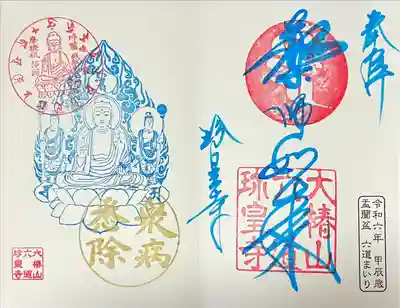 奉拝
薬師如来
珍皇寺
大椿山
六道
珍皇寺
令和六年 甲辰歳
盂蘭盆 六道まいり
衆病
悉除
大椿山
六道
珍皇寺